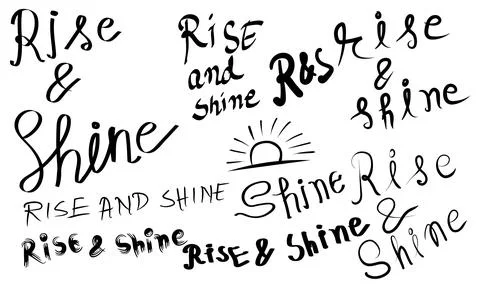 Rise
&
Shine
RiSE
and
Shine
R&S
rise
&
shine
RISE AND SHINE
Rise & Shine
Shine
RiSE & Shine
Rise
&
Shine